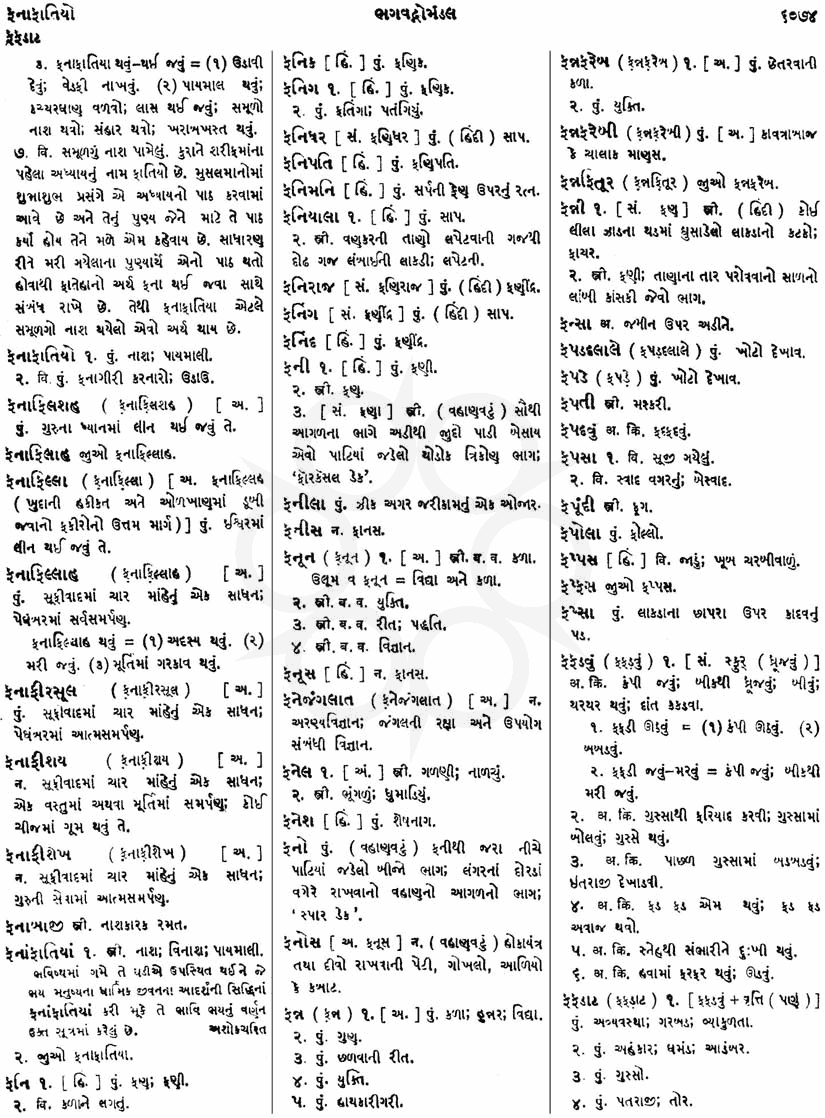 ફનાફાતિયો
ભગવદ્ગોમંડલ
૬૦૭૪
ફફડાટ
૩. ફનાફાતિયા થવું-થઈ જવું = (૧) ઉડાવી
દેવું; વેડફી નાખવું. (૨) પાયમાલ થવું;
કચ્ચરઘાણ વળવો; લાસ થઈ જવું; સમૂળો
નાશ થવો; સંહાર થવો; ખરાબખસ્ત થવું.
૭. વિ. સમૂળગું નાશ પામેલું. કુરાને શરીફમાંના
પહેલા અધ્યાયનું નામ ફાતિયો છે. મુસલમાનોમાં
શુભાશુભ પ્રસંગે એ અધ્યાયનો પાઠ કરવામાં
આવે છે અને તેનું પુણ્ય જેને માટે તે પાઠ
કર્યો હોય તેને મળે એમ કહેવાય છે. સાધારણ
રીતે મરી ગયેલાના પુણ્યાર્થે એનો પાઠ થતો
હોવાથી ફાતેહાનો અર્થ ફના થઈ જવા સાથે
સંબંધ રાખે છે. તેથી ફનાફાતિયા એટલે
સમૂળગો નાશ થયેલો એવો અર્થ થાય છે.
ફનાફાતિયો ૧. પું. નાશ; પાયમાલી.
૨. વિ. પું. ફનાગીરી કરનારો; ઉડાઉ.
ફનાફિલશહ (ફનાફિલશહ) [ અ. ]
પું. ગુરુના ધ્યાનમાં લીન થઈ જવું તે.
ફનાફિલાહ જુઓ ફનાફિલ્લાહ.
ફનાફિલ્લા (ફનાફિલ્લા) [ અ. ફનાફિલ્લહ
(ખુદાની હકીકત અને ઓળખાણમાં ડૂબી
જવાનો ફકીરોનો ઉત્તમ માર્ગ)] પું. ઈશ્વરમાં
લીન થઈ જવું તે.
ફનાફિલ્લાહ (ફનાફિલ્લાહ) [ અ. ]
પું. સૂફીવાદમાં ચાર માંહેનું એક સાધન;
પેઘંબરમાં સર્વસમર્પણ.
ફનાફિલ્લાહ થવું = (૧) અદૃશ્ય થવું. (૨)
મરી જવું. (૩) મૂર્તિમાં ગરકાવ થવું.
ફનાફીરસૂલ (ફનાફીરસૂલ) [ અ. ]
પું. સૂફીવાદમાં ચાર માંહેનું એક સાધન;
પેઘંબરમાં આત્મસમર્પણ.
ફનાફીશય (ફનાફીશય) [ અ. ]
ન. સૂફીવાદમાં ચાર માંહેનું એક સાધન;
એક વસ્તુમાં અથવા મૂર્તિમાં સમર્પણ; કોઈ
ચીજમાં ગૂમ થવું તે.
ફનાફીશેખ (ફનાફીશેખ) [ અ. ]
ન. સૂફીવાદમાં ચાર માંહેનું એક સાધન;
ગુરુની સેવામાં આત્મસમર્પણ.
ફનાબાજી સ્ત્રી. નાશકારક રમત.
ફનાંફાતિયાં ૧. સ્ત્રી. નાશ; વિનાશ; પાયમાલી.
ભવિષ્યમાં ગમે તે ઘડીએ ઉપસ્થિત થઈને જે
ભય મનુષ્યના ધાર્મિક જીવનના આદર્શની સિદ્ધિનાં
ફનાંફાતિયાં કરી મૂકે તે ભાવિ ભયનું વર્ણન
ઉક્ત સૂત્રમાં કરેલું છે. અશોકચરિત
૨. જુઓ ફનાફાતિયા.
ફનિ ૧. [ હિં. ] પું. ફણ; ફણી.
૨. વિ. કળાને લગતું.
ફનિક [ હિં. ] પું. ફણિક.
ફનિગ ૧. [ હિં. ] પું. ફણિક.
૨. પું. ફતિંગા; પતંગિયું.
ફનિધર [ સં. ફણિધર ] પું. (હિંદી) સાપ.
ફનિપતિ [ હિં. ] પું. ફણિપતિ.
ફનિમનિ [ હિં. ] પું. સર્પની ફેણ ઉપરનું રત્ન.
ફનિયાલા ૧. [ હિં. ] પું. સાપ.
૨. સ્ત્રી. વણકરની તાણો લપેટવાની ગજથી
દોઢ ગજ લંબાઈની લાકડી; લપેટની.
ફનિરાજ [ સં. ફણિરાજ ] પું. (હિંદી) ફણીંદ્ર.
ફનિંગ [ સં. ફણીંદ્ર ] પું. (હિંદી) સાપ.
ફનિંદ [ હિં. ] પું. ફણીંદ્ર.
ફની ૧. [ હિં. ] પું. ફણી.
૨. સ્ત્રી. ફણ.
૩. [ સં. ફણા ] સ્ત્રી. (વહાણવટું) સૌથી
આગળના ભાગે અડીથી જુદો પાડી બેસાય
એવો પાટિયાં જડેલો થોડોક ત્રિકોણ ભાગ;
‘ફૉરકૅસલ ડેક’.
ફનીલા પું. ઝીક અગર જરીકામનું એક ઓજાર.
ફનીસ ન. ફાનસ.
ફનૂન (ફનૂન) ૧. [ અ. ] સ્ત્રી. બ. વ. કળા.
ઉલૂમ વ ફનૂન = વિદ્યા અને કળા.
૨. સ્ત્રી. બ. વ. યુક્તિ.
૩. સ્ત્રી. બ. વ. રીત; પદ્ધતિ.
૪. સ્ત્રી. બ. વ. વિજ્ઞાન.
ફનૂસ [ હિં. ] ન. ફાનસ.
ફનેજંગલાત (ફનેજંગલાત) [ અ. ] ન.
અરણ્યવિજ્ઞાન; જંગલની રક્ષા અને ઉપયોગ
સંબંધી વિજ્ઞાન.
ફનેલ ૧. [ અં. ] સ્ત્રી. ગળણી; નાળચું.
૨. સ્ત્રી. ભૂંગળું; ધુમાડિયું.
ફનેશ [ હિં. ] પું. શેષનાગ.
ફનો પું. (વહાણવટું) ફનીથી જરા નીચે
પાટિયાં જડેલો બીજો ભાગ; લંગરનાં દોરડાં
વગેરે રાખવાનો વહાણનો આગળનો ભાગ;
‘સ્પાર ડેક’.
ફનોસ [ અ. ફનૂસ ] ન. (વહાણવટું) હોકાયંત્ર
તથા દીવો રાખવાની પેટી, ગોખલો, આળિયો
કે કબાટ.
ફન્ન (ફન્ન) ૧. [ અ. ] પું. કળા; હુન્નર; વિદ્યા.
૨. પું. ગુણ.
૩. પું. છળવાની રીત.
૪. પું. યુક્તિ.
૫. પું. હાથકારીગરી.
ફન્નફરેબ (ફન્નફરેબ) ૧. [ અ. ] પું. છેતરવાની
કળા.
૨. પું. યુક્તિ.
ફન્નફરેબી (ફન્નફરેબી) પું. [ અ. ] કાવત્રાબાજ
કે ચાલાક માણસ.
ફન્નફિતૂર (ફન્નફિતૂર) જુઓ ફન્નફરેબ.
ફન્ની ૧. [ સં. ફણ ] સ્ત્રી. (હિંદી) કોઈ
લીલા ઝાડના થડમાં ઘુસાડેલો લાકડાનો કટકો;
ફાચર.
૨. સ્ત્રી. ફણી; તાણાના તાર પરોવવાનો સાળનો
લાંબી કાંસકી જેવો ભાગ.
ફન્સા અ. જમીન ઉપર અડીને.
ફપડદલાલે (ફપડદલાલે) પું. ખોટો દેખાવ.
ફપડે (ફપડે) પું. ખોટો દેખાવ.
ફપતી સ્ત્રી. મશ્કરી.
ફપદવું અ. ક્રિ. ફદફદવું.
ફપસા ૧. વિ. સૂજી ગયેલું.
૨. વિ. સ્વાદ વગરનું; બેસ્વાદ.
ફપૂંદી સ્ત્રી. ફૂગ.
ફપોલા પું. ફોલ્લો.
ફપ્પસ [ હિં. ] વિ. જાડું; ખૂબ ચરબીવાળું.
ફપ્ફસ જુઓ ફપ્પસ.
ફપ્સા પું. લાકડાના છાપરા ઉપર કાદવનું
પડ.
ફફડવું (ફફડવું) ૧. [ સં. સ્ફુર્ (ધ્રૂજવું) ]
અ. ક્રિ. કંપી જવું; બીકથી ધ્રૂજવું; બીવું;
થરથર થવું; દાંત કકડવા.
૧. ફફડી ઊઠવું = (૧) કંપી ઊઠવું. (૨)
બબડવું.
૨. ફફડી જવું-મરવું = કંપી જવું; બીકથી
મરી જવું.
૨. અ. ક્રિ. ગુસ્સાથી ફરિયાદ કરવી; ગુસ્સામાં
બોલવું; ગુસ્સે થવું.
૩. અ. ક્રિ. પાછળ ગુસ્સામાં બડબડવું;
ઇતરાજી દેખાડવી.
૪. અ. ક્રિ. ફડ ફડ એમ થવું; ફડ ફડ
અવાજ થવો.
૫. અ. ક્રિ. સ્નેહથી સંભારીને દુઃખી થવું.
૬. અ. ક્રિ. હવામાં ફરફર થવું; ઊડવું.
ફફડાટ (ફફડાટ) ૧. [ ફફડવું + ત્રાત્તિ (પણું) ]
પું. અવ્યવસ્થા; ગરબડ; વ્યાકુળતા.
૨. પું. અહંકાર; ઘમંડ; આડંબર.
૩. પું. ગુસ્સો.
૪. પું. પતરાજી; તોર.